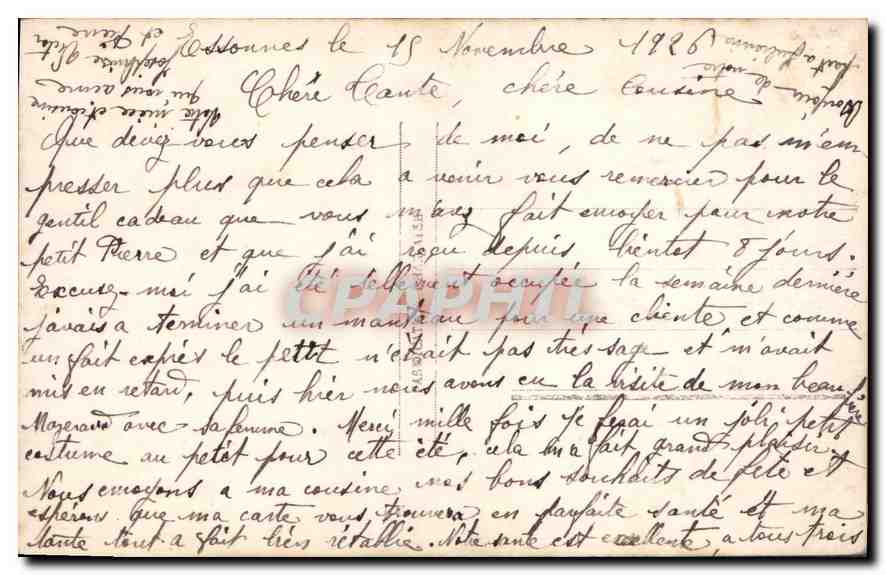 Essonnes le 15 Novembre 1926
Chère Tante, chère Cousine
Que devez vous penser de moi, de ne pas m'em
presser plus que cela a venir vous remercier pour le
gentil cadeau que vous m'avez fait envoyer pour notre
petit Pierre et que j'ai reçu depuis bientot 8 jours.
Excusez-moi j'ai été tellement occupée la semaine dernière
j'avais a terminer un manteau pour une cliente et comme
un fait exprès le petit n'était pas très sage et m'avait
mis en retard, puis hier nous avons eu la visite de mon beau frère
Mazeraud avec sa femme. Merci mille fois je ferai un joli petit
costume au petit pour cette été, cela m'a fait grand plaisir.
Nous envoyons a ma cousine nos bons souhaits de fête et
espérons que ma carte vous trouvera en parfaite santé et ma
tante tout a fait bien rétablie. Notre santé est excellente a tous trois
Votre nièce et cousine
qui vous aime
Joséphine Victor
et Pierre
Bonjour de notre
part a Julienne
CPAPHIL